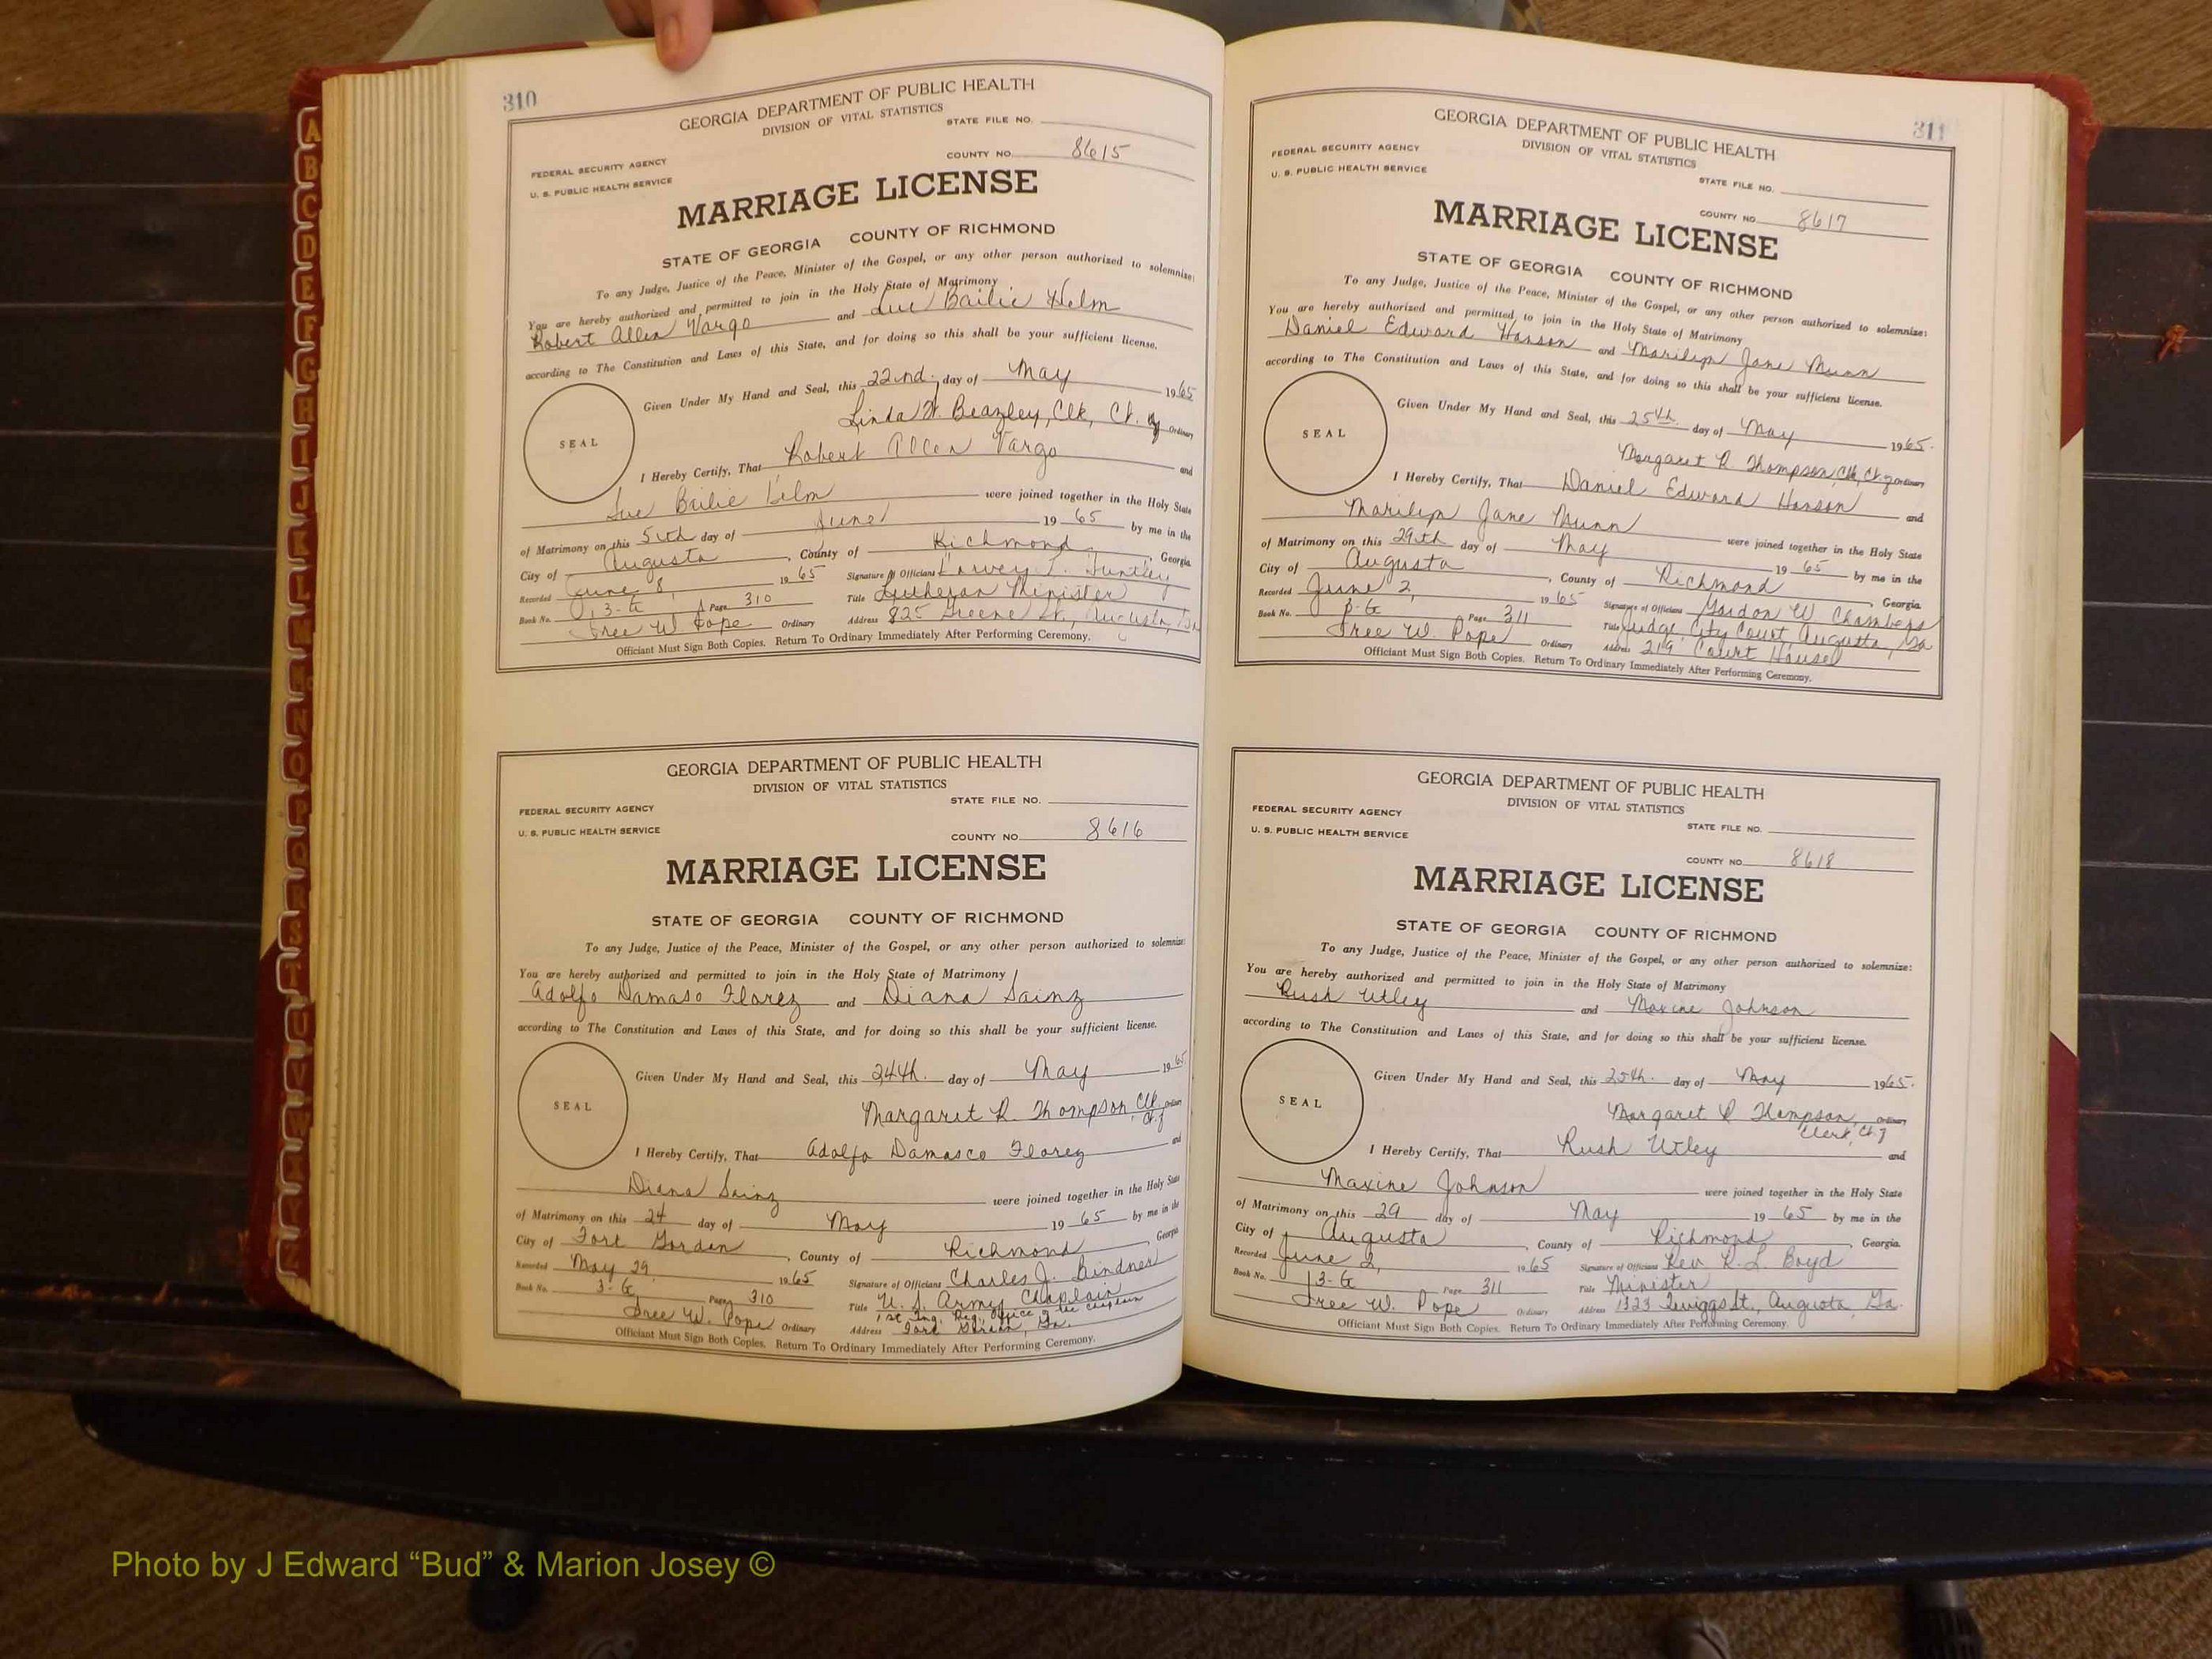 310
GEORGIA DEPARTMENT OF PUBLIC HEALTH
DIVISION OF VITAL STATISTICS
STATE FILE NO.
FEDERAL SECURITY AGENCY
U. S. PUBLIC HEALTH SERVICE
COUNTY NO. 8615
MARRIAGE LICENSE
STATE OF GEORGIA COUNTY OF RICHMOND
To any Judge, Justice of the Peace, Minister of the Gospel, or any other person authorized to solemnize:
You are hereby authorized and permitted to join in the Holy State of Matrimony
Robert Allen Vargo and Sue Bailie Helm
according to The Constitution and Laws of this State, and for doing so this shall be your sufficient license.
Given Under My Hand and Seal, this 22nd. day of May 1965
SEAL
Linda W. Beazley, Clk, Ct. of Ordinary
I Hereby Certify, That Robert Allen Vargo and
Sue Bailie Helm were joined together in the Holy State
of Matrimony on this 5th day of June 19 65 by me in the
City of Augusta, County of Richmond, Georgia
Recorded June 8, 1965 Signature of Officiant L. Huntley
Book No. 3-G Page 310 Title Lutheran Minister
Tree W. Pope Ordinary Address 825 Greene St., Augusta, Ga
Officiant Must Sign Both Copies. Return To Ordinary Immediately After Performing Ceremony.
GEORGIA DEPARTMENT OF PUBLIC HEALTH
DIVISION OF VITAL STATISTICS
STATE FILE NO.
FEDERAL SECURITY AGENCY
U. S. PUBLIC HEALTH SERVICE
COUNTY NO. 8616
MARRIAGE LICENSE
STATE OF GEORGIA COUNTY OF RICHMOND
To any Judge, Justice of the Peace, Minister of the Gospel, or any other person authorized to solemnize:
You are hereby authorized and permitted to join in the Holy State of Matrimony
Adolfo Damaso Florez and Diana Sainz
according to The Constitution and Laws of this State, and for doing so this shall be your sufficient license.
Given Under My Hand and Seal, this 24th. day of May 1965
SEAL
Margaret R. Thompson, Clk. Ct. of Ordinary
I Hereby Certify, That Adolfo Damasco Florez and
Diana Sainz were joined together in the Holy State
of Matrimony on this 24 day of May 19 65 by me in the
City of Fort Gordon, County of Richmond Georgia
Recorded May 29, 1965 Signature of Officiant Charles J. Bindner
Book No. 3-G Page 310 Title U. S. Army Chaplain
1st Tng. Reg., Office of the Chaplain
Tree W. Pope Ordinary Address Fort Gordon, Ga.
Officiant Must Sign Both Copies. Return To Ordinary Immediately After Performing Ceremony.
311
GEORGIA DEPARTMENT OF PUBLIC HEALTH
DIVISION OF VITAL STATISTICS
FEDERAL SECURITY AGENCY
U. S. PUBLIC HEALTH SERVICE
STATE FILE NO.
COUNTY NO. 8617
MARRIAGE LICENSE
STATE OF GEORGIA COUNTY OF RICHMOND
To any Judge, Justice of the Peace, Minister of the Gospel, or any other person authorized to solemnize:
You are hereby authorized and permitted to join in the Holy State of Matrimony
Daniel Edward Hanson and Marilyn Jane Munn
according to The Constitution and Laws of this State, and for doing so this shall be your sufficient license.
Given Under My Hand and Seal, this 25th. day of May 1965.
SEAL
Margaret R Thompson, Clk, Ct. of Ordinary
I Hereby Certify, That Daniel Edward Hanson and
Marilyn Jane Munn were joined together in the Holy State
of Matrimony on this 29th day of May 19 65 by me in the
City of Augusta, County of Richmond, Georgia
Recorded June 2, 1965 Signature of Officiant Gordon W Chambers
Book No. 3-G Page 311 Title Judge, City Court, Augusta, Ga
Tree W. Pope Ordinary Address 219 Court House
Officiant Must Sign Both Copies. Return To Ordinary Immediately After Performing Ceremony.
GEORGIA DEPARTMENT OF PUBLIC HEALTH
DIVISION OF VITAL STATISTICS
FEDERAL SECURITY AGENCY
U. S. PUBLIC HEALTH SERVICE
STATE FILE NO.
COUNTY NO. 8618
MARRIAGE LICENSE
STATE OF GEORGIA COUNTY OF RICHMOND
To any Judge, Justice of the Peace, Minister of the Gospel, or any other person authorized to solemnize:
You are hereby authorized and permitted to join in the Holy State of Matrimony
Rush Utley and Maxine Johnson
according to The Constitution and Laws of this State, and for doing so this shall be your sufficient license.
Given Under My Hand and Seal, this 25th. day of May 1965.
SEAL
Margaret R Thompson, Ordinary
Clerk, Ct. of
I Hereby Certify, That Rush Utley and
Maxine Johnson were joined together in the Holy State
of Matrimony on this 29 day of May 19 65 by me in the
City of Augusta, County of Richmond, Georgia.
Recorded June 2, 1965 Signature of Officiant Rev R. L. Boyd
Book No. 3-G Page 311 Title Minister
Tree W. Pope Ordinary Address 1323 Twiggs St., Augusta, Ga.
Officiant Must Sign Both Copies. Return To Ordinary Immediately After Performing Ceremony.
A
B
C
D
E
F
G
H
I
J
K
L
M
Mc
N
O
P
Q
R
S
T
U
V
W
Photo by J Edward “Bud” & Marion Josey ©